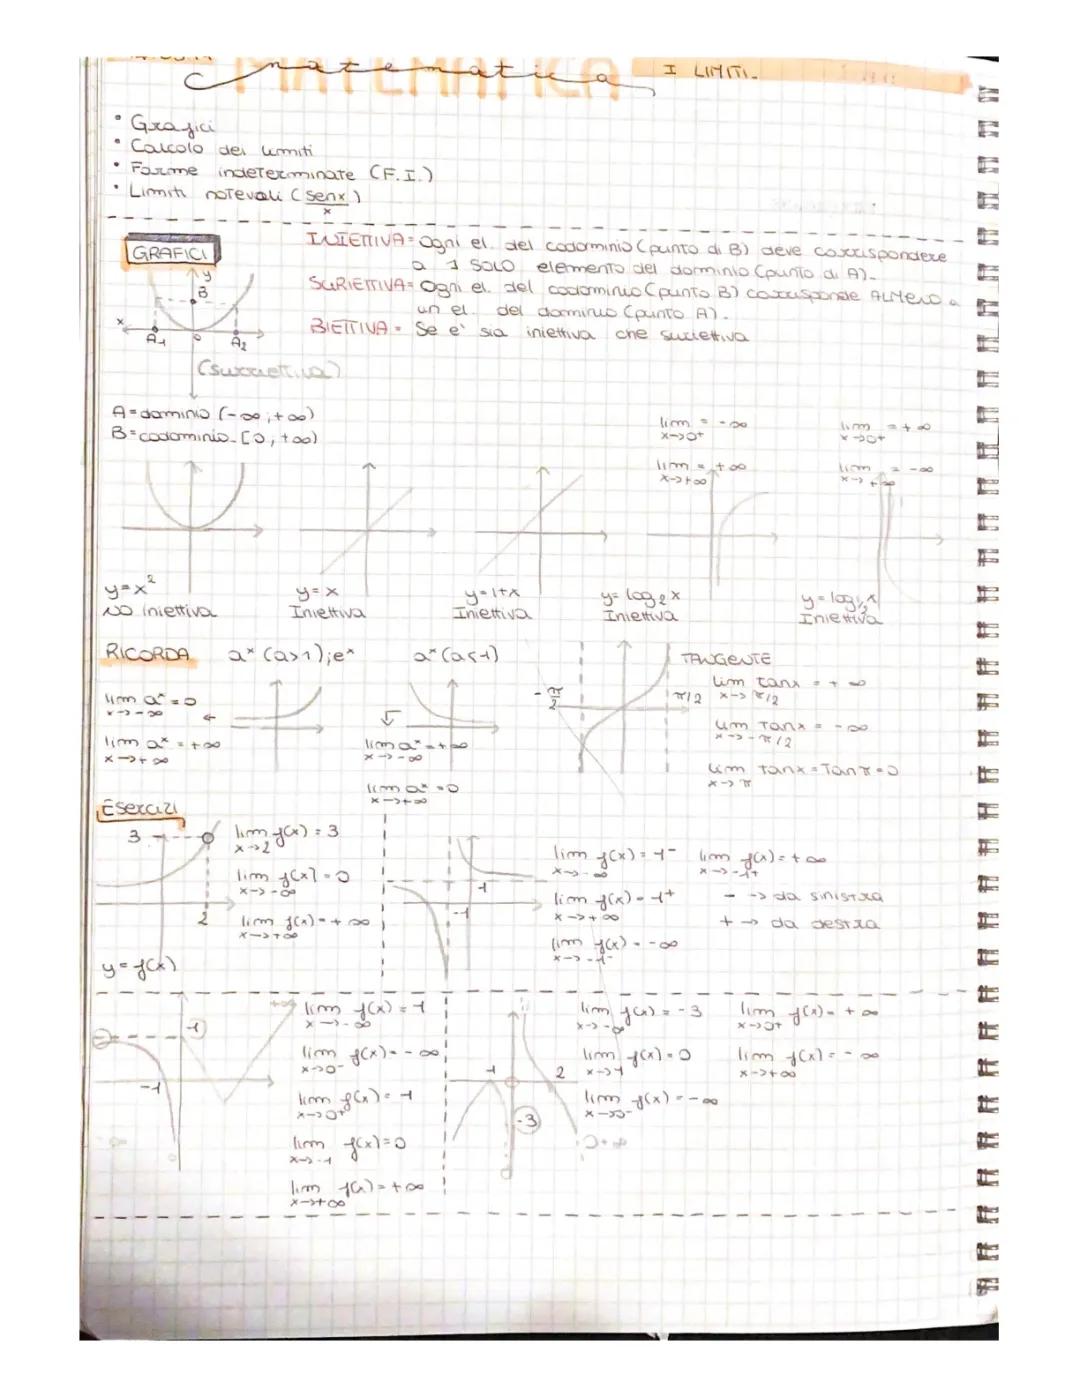 matematica I LIMITI.
MATEMATICA
• Grafici
• Calcolo dei limiti
• Forme indeterminate (F.I.)
• Limiti notevoli (senx/x)
GRAFICI
INIETTIVA= Ogni el. del codominio (punto di B) deve corrispondere
a 1 SOLO elemento del dominio (punto di A).
SURIETTIVA= Ogni el. del codominio (punto B) corrisponde ALMENO a
un el. del dominio (punto A).
BIETTIVA= Se e' sia iniettiva che suriettiva
y
B
x
A1 0 A2
(surriettiva)
A=dominio (-∞;+∞)
B=codominio [0,+∞)
lim x->0+ = -∞
lim x->+∞ = +∞
lim x->0+ = +∞
lim x->+∞ = -∞
y=x²
NO iniettiva
y=x
Iniettiva
y=1+x
Iniettiva
y=log₂x
Iniettiva
y=log½x
Iniettiva
RICORDA aˣ (a>1);eˣ
lim aˣ=0 x->-∞
lim aˣ=+∞ x->+∞
aˣ(a<1)
lim aˣ=+∞ x->-∞
lim aˣ=0 x->+∞
-π/2 π/2
TANGENTE
lim tanx = +∞ x->π/2
lim tanx = -∞ x->-π/2
lim tanx=Tanπ=0 x->π
Esercizi
3
2
y=f(x)
lim f(x)=3 x->2
lim f(x)=0 x->-∞
lim f(x)=+∞ x->+∞
-1
-1
lim f(x)=1- x->-∞
lim f(x)=1+ x->+∞
lim f(x)=-∞ x->-1-
lim f(x)=+∞ x->-1+
- -> da sinistra
+ -> da destra
1
-1
+∞
-∞
lim f(x)=1 x->-∞
lim f(x)=-∞ x->0-
lim f(x)=1 x->0+
lim f(x)=0 x->-1
lim f(x)=+∞ x->+∞
2
-3
lim f(x)=-3 x->-∞
lim f(x)=0 x->1
lim f(x)=-∞ x->0-
lim f(x)=+∞ x->0+
lim f(x)=-∞ x->+∞